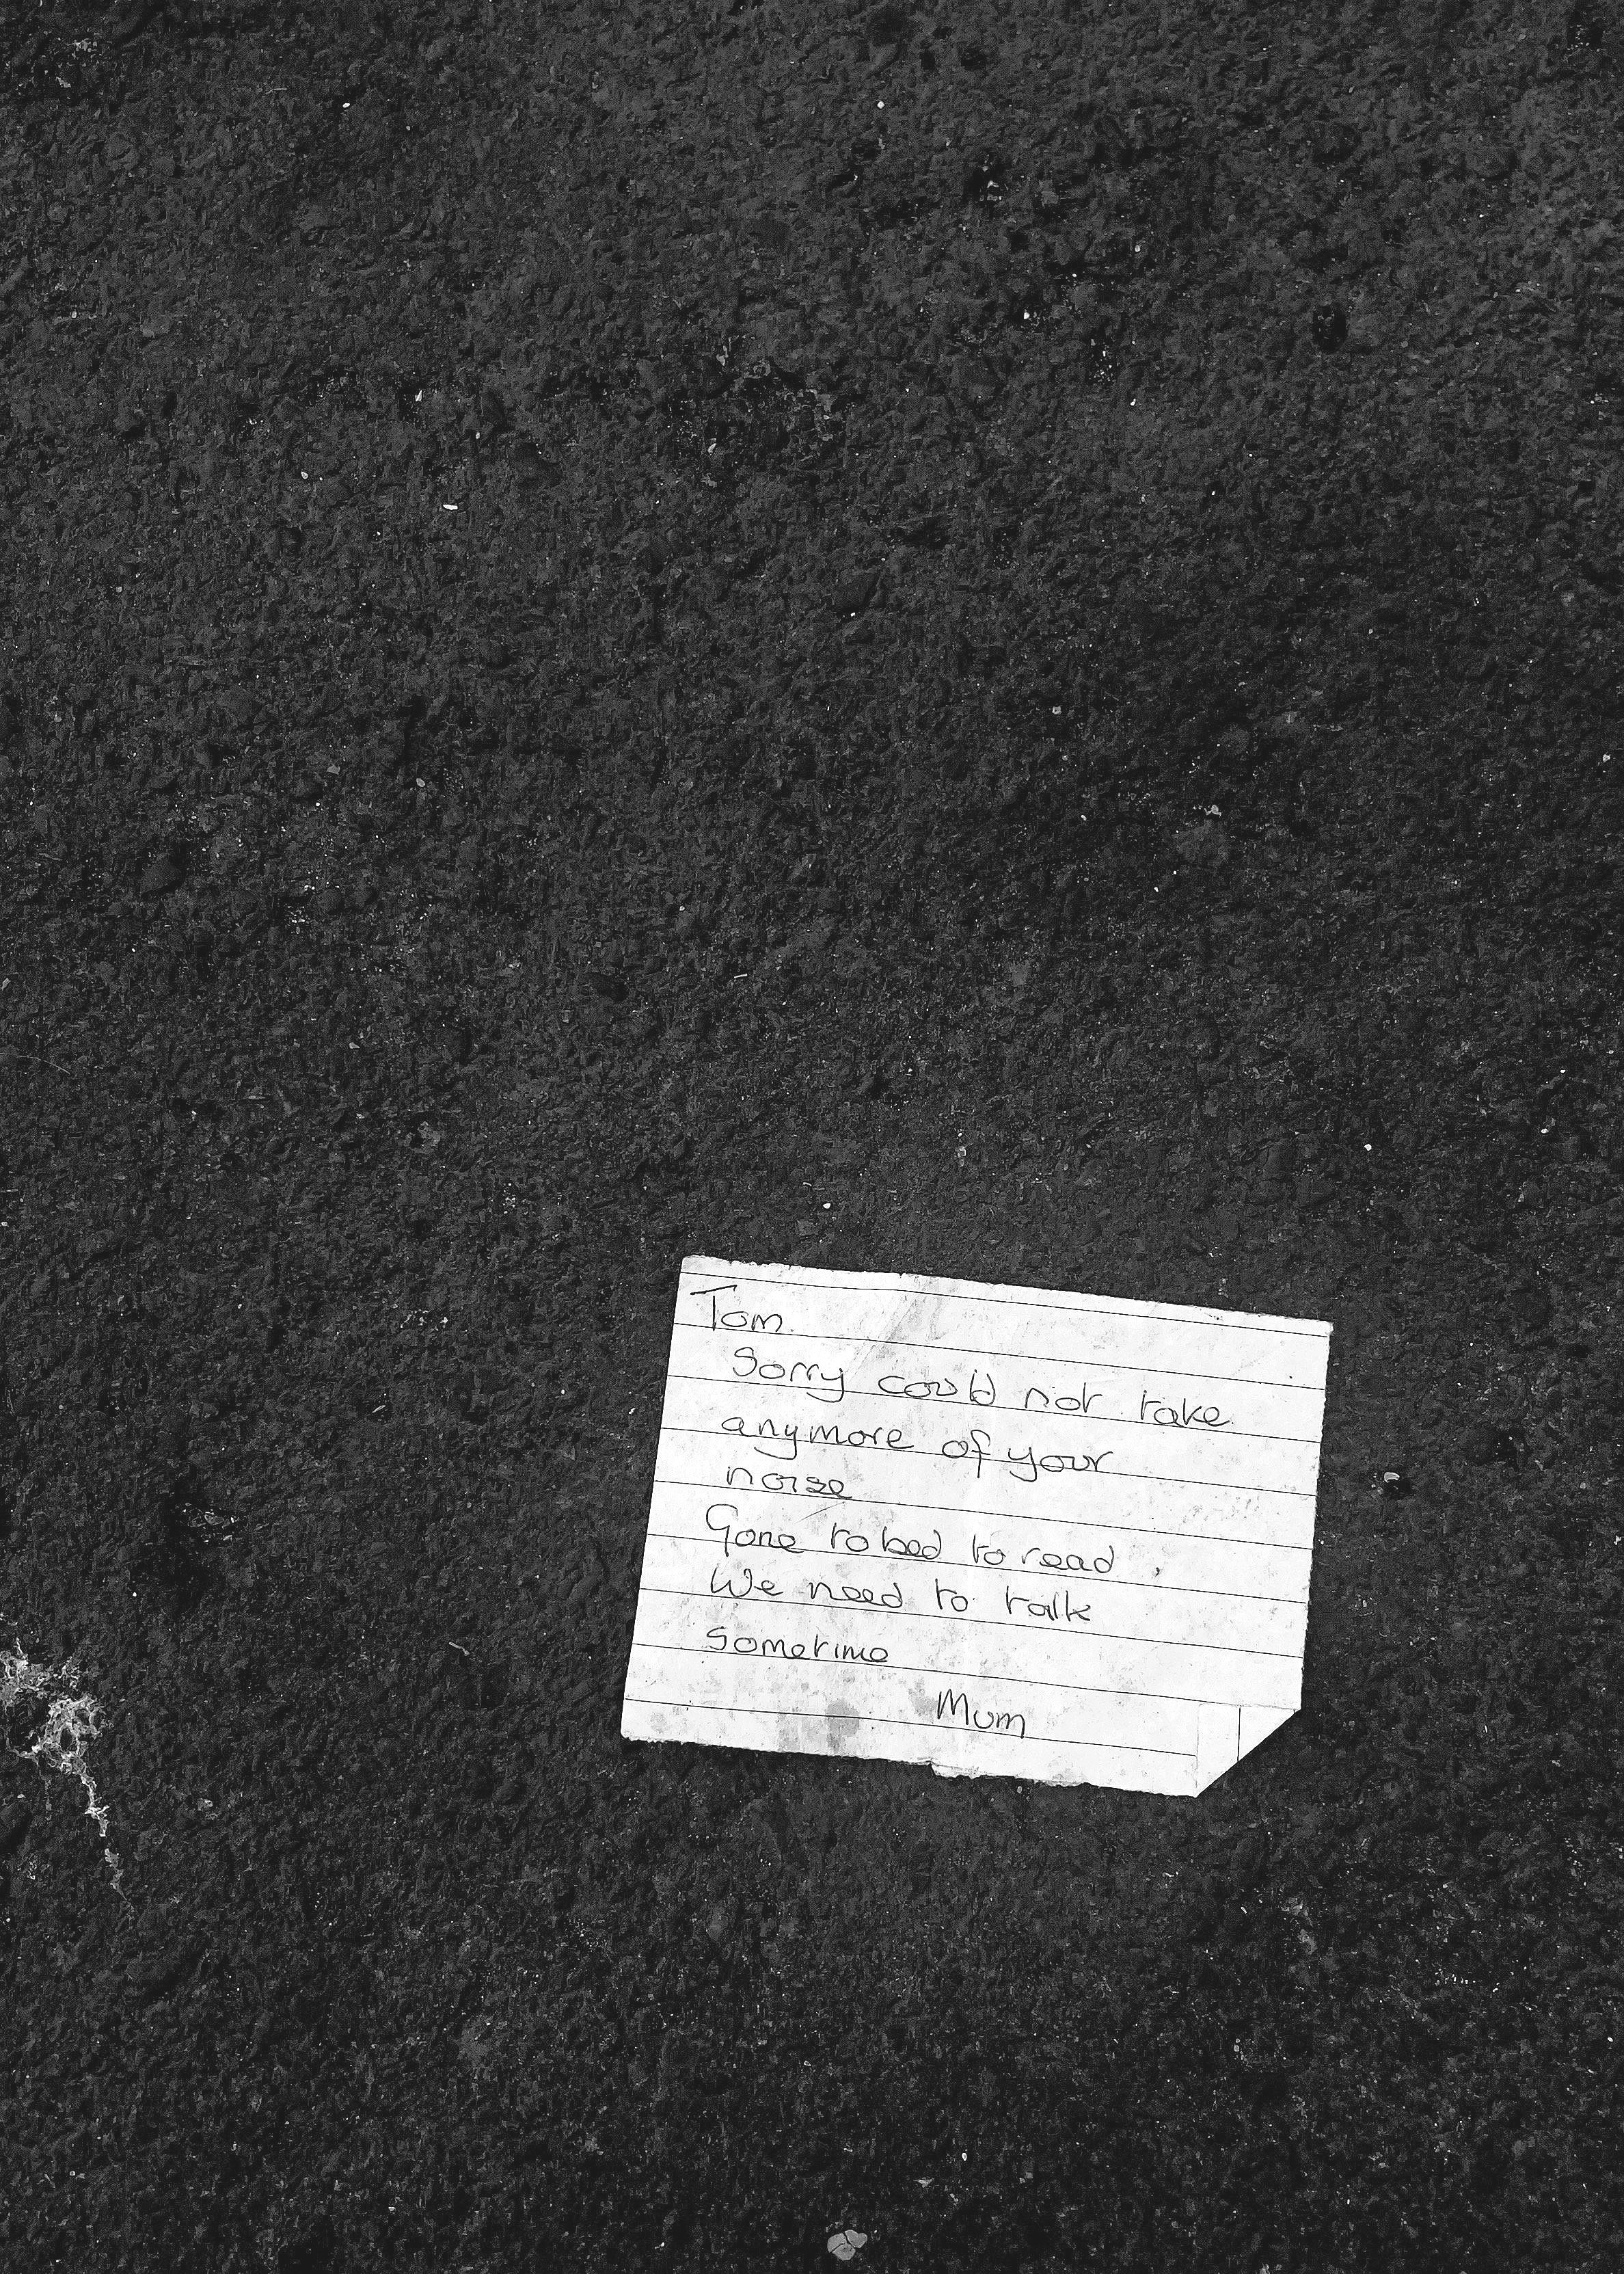 Tom.
Sorry could not take
anymore of your
noise
Gone to bed to read .
We need to talk
sometime
Mum